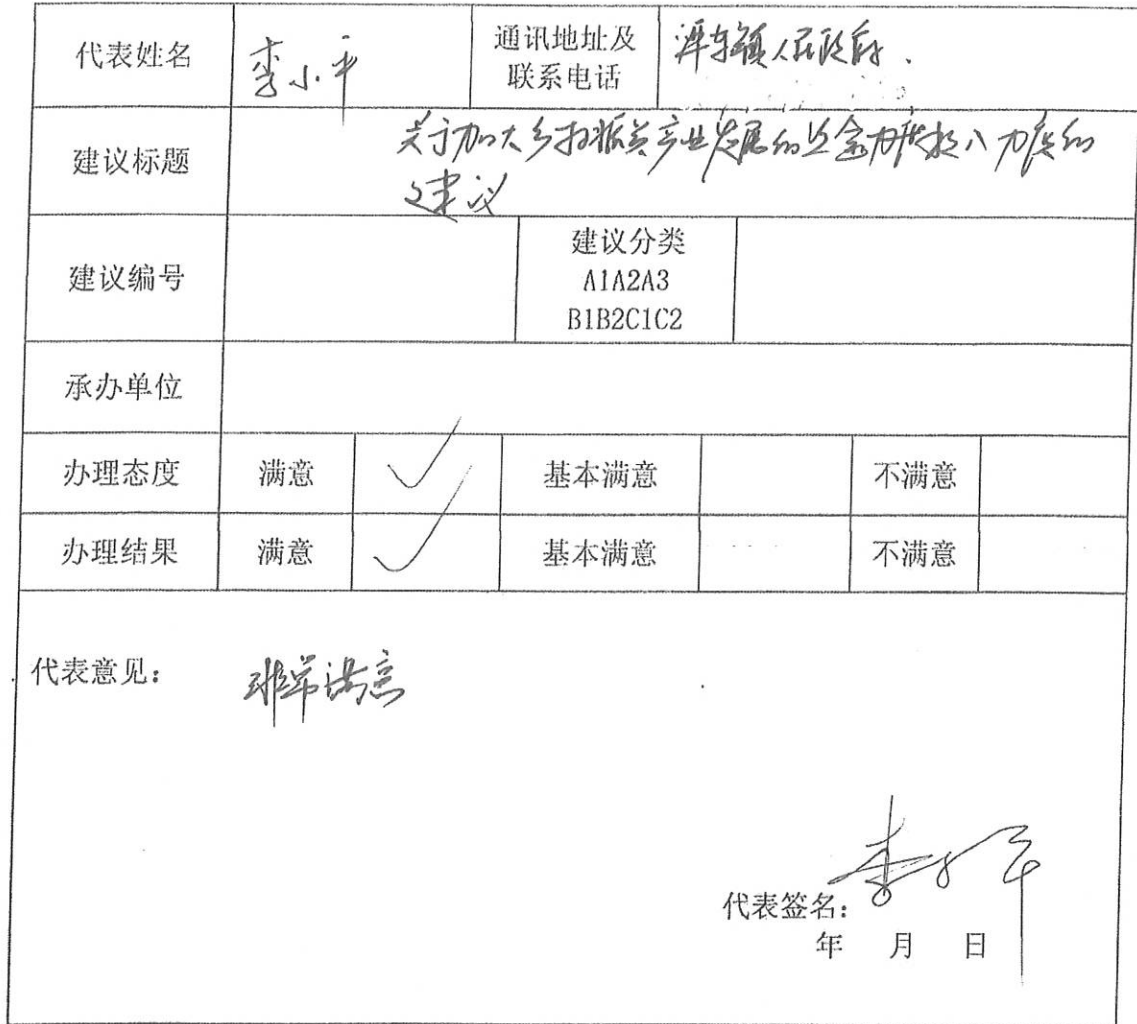 代表姓名 李小平 通讯地址及联系电话 潭东镇人民政府.
建议标题 关于加大乡村振兴产业发展的资金力度投入力度的
建议
建议编号 建议分类
A1A2A3
B1B2C1C2
承办单位
办理态度 满意 ✓ 基本满意 不满意
办理结果 满意 ✓ 基本满意 不满意
代表意见: 非常满意
代表签名: 李小平
年 月 日